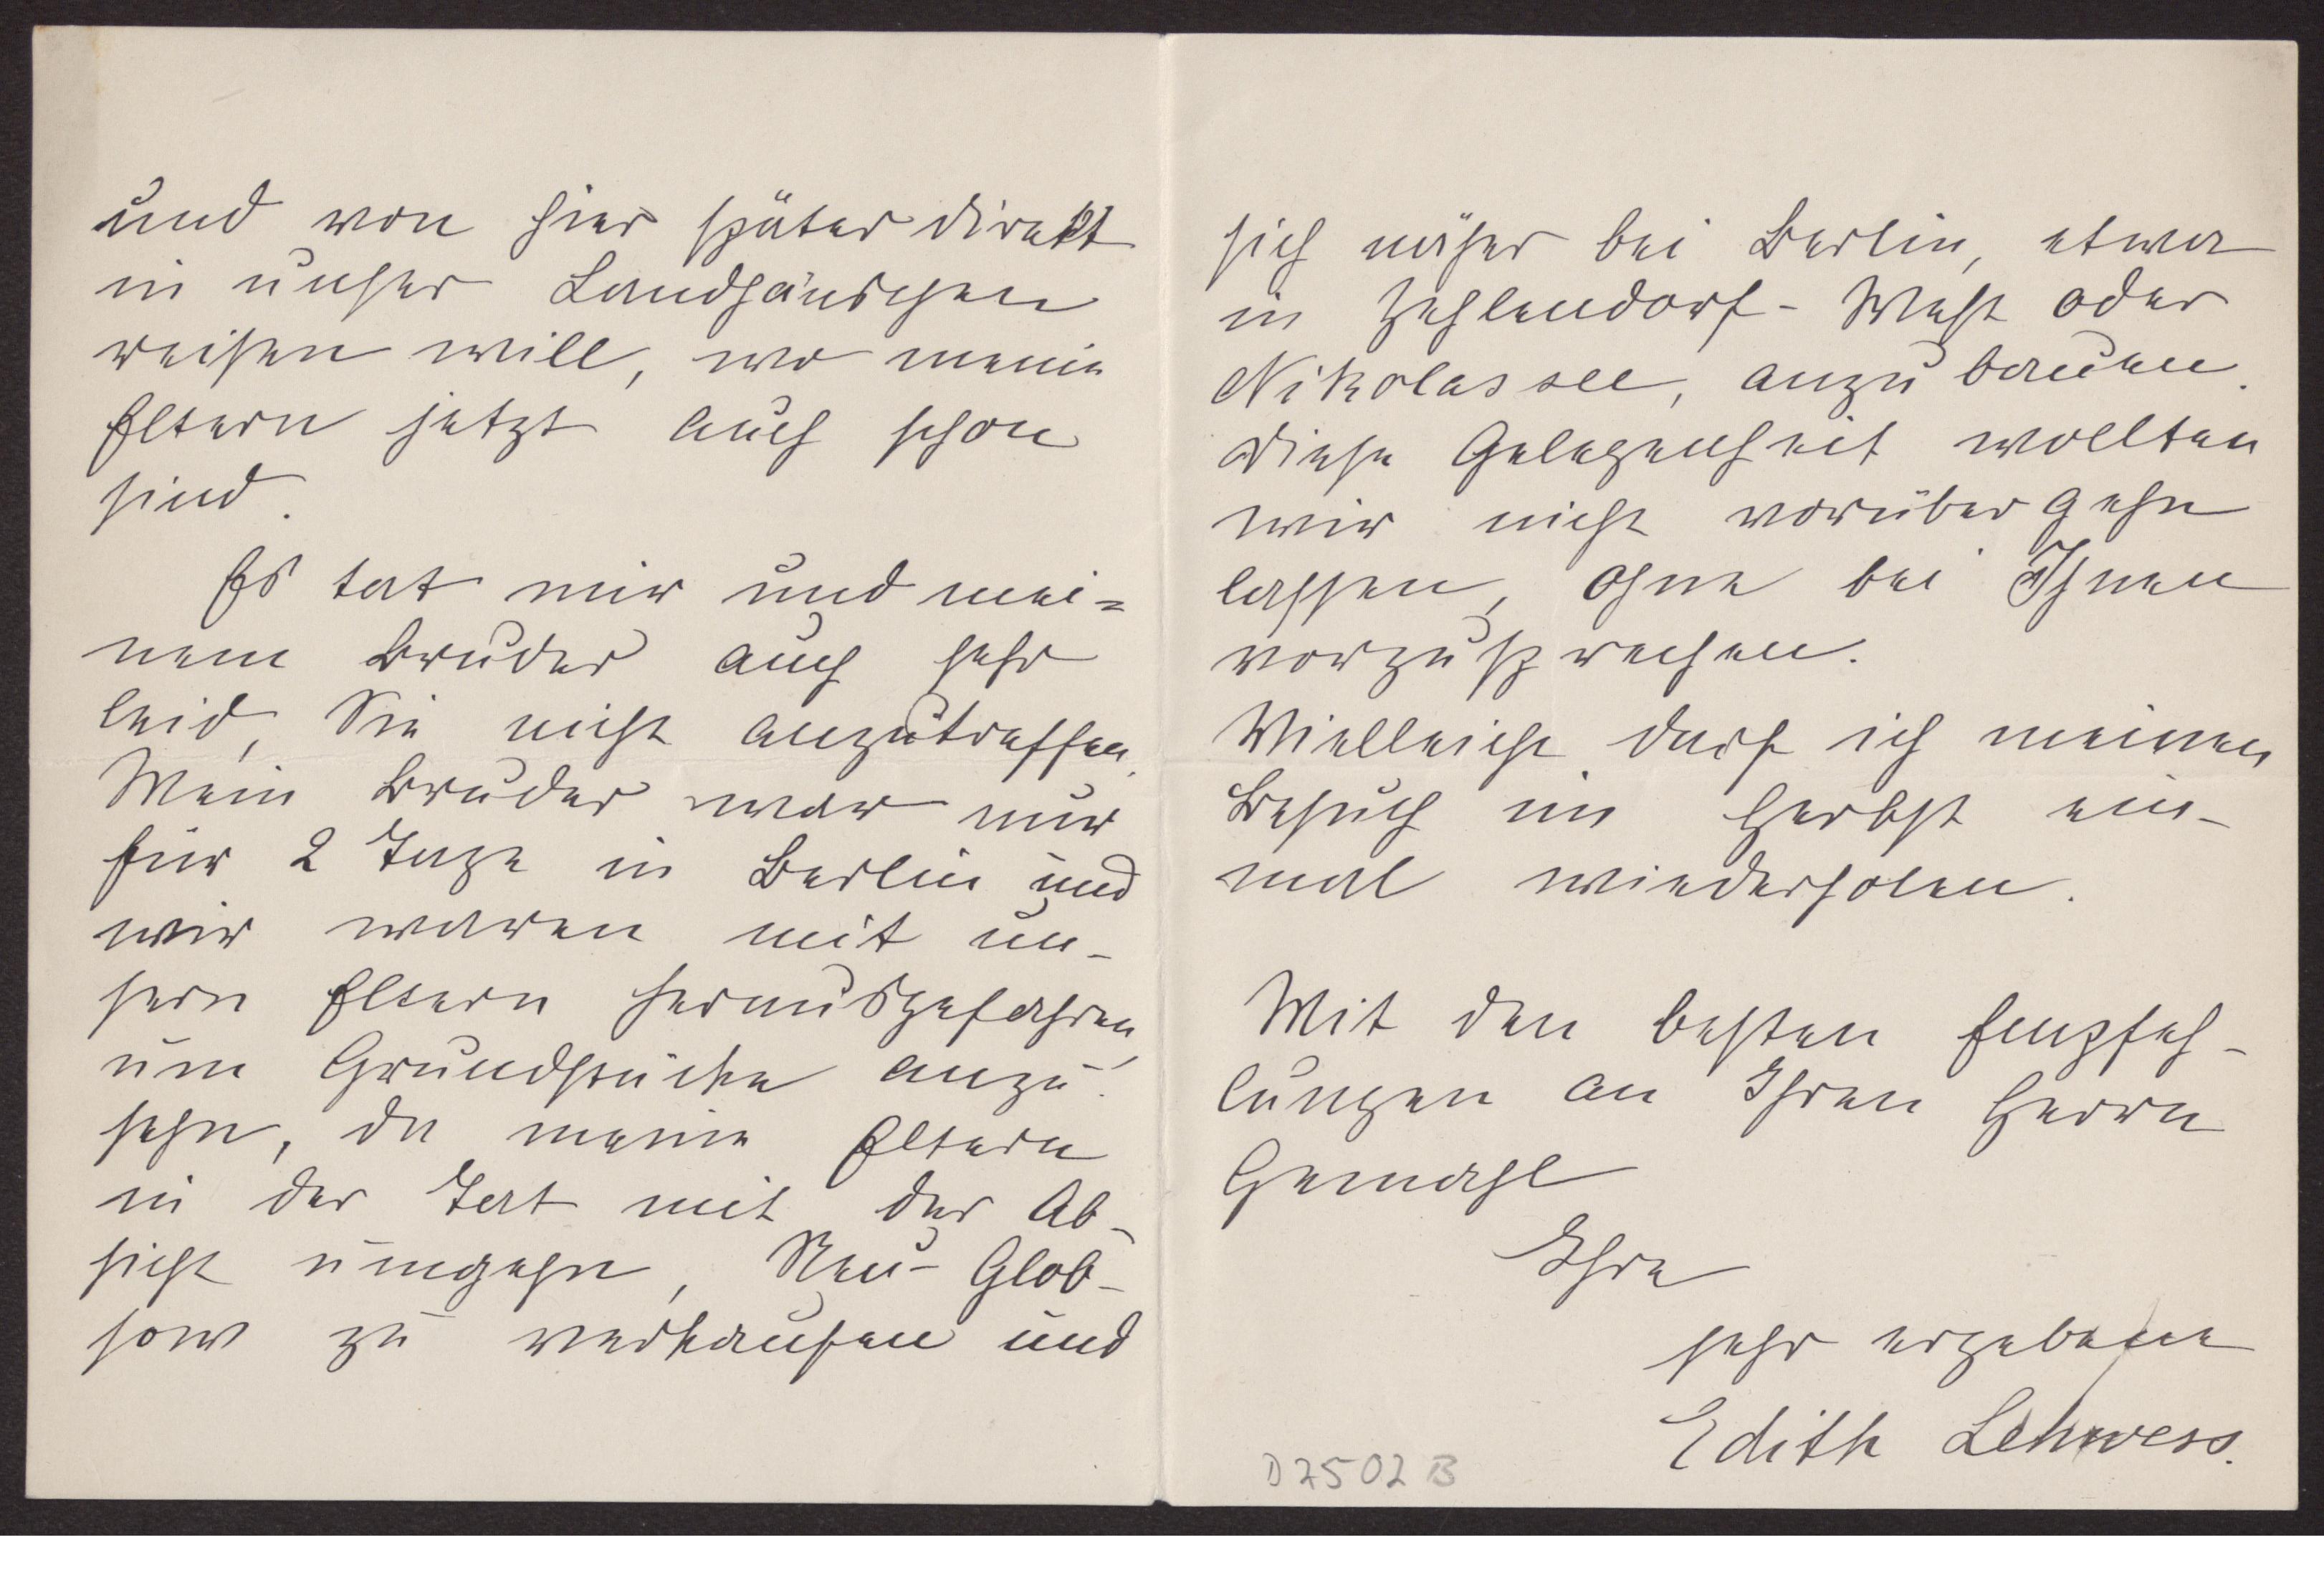 und von hier später direkt
in unser Landhäuschen
reisen will, wo meine
Eltern jetzt auch schon
sind.
Es tat mir und mei=
nem Bruder auch sehr
leid, Sie nicht anzutreffen.
Mein Bruder war nur
für 2 Tage in Berlin und
wir waren mit un-
sern Eltern herausgefahren,
um Grundstücke anzu-
sehn, da meine Eltern
in der Tat mit der Ab-
sicht umgehn, Neu-Glob-
sow zu verkaufen und
sich näher bei Berlin, etwa
in Zehlendorf-West oder
Nikolassee, anzubauen.
Diese Gelegenheit wollten
wir nicht vorübergehn
lassen, ohne bei Ihnen
vorzusprechen.
Vielleicht darf ich meinen
Besuch im Herbst ein-
mal wiederholen.
Mit den besten Empfeh-
lungen an Ihren Herrn
Gemahl
Ihre
sehr ergebene
Edith Lehwess.
D2502B